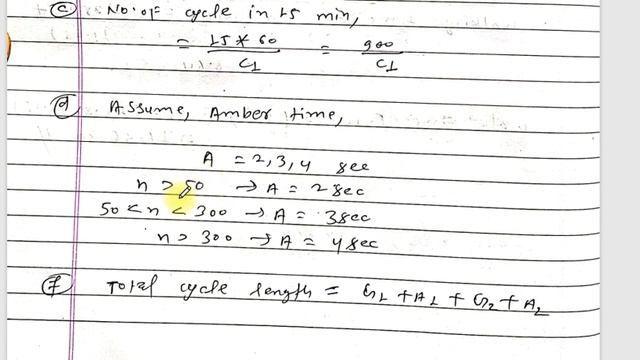 (c) No. of cycle in 15 min,
= 15 * 60 / C1 = 900 / C1
(d) Assume, Amber time,
A = 2,3,4 sec
n > 50 → A = 2 sec
50 < n < 300 → A = 3 sec
n > 300 → A = 4 sec
(f) Total cycle length = G1 + A1 + G2 + A2